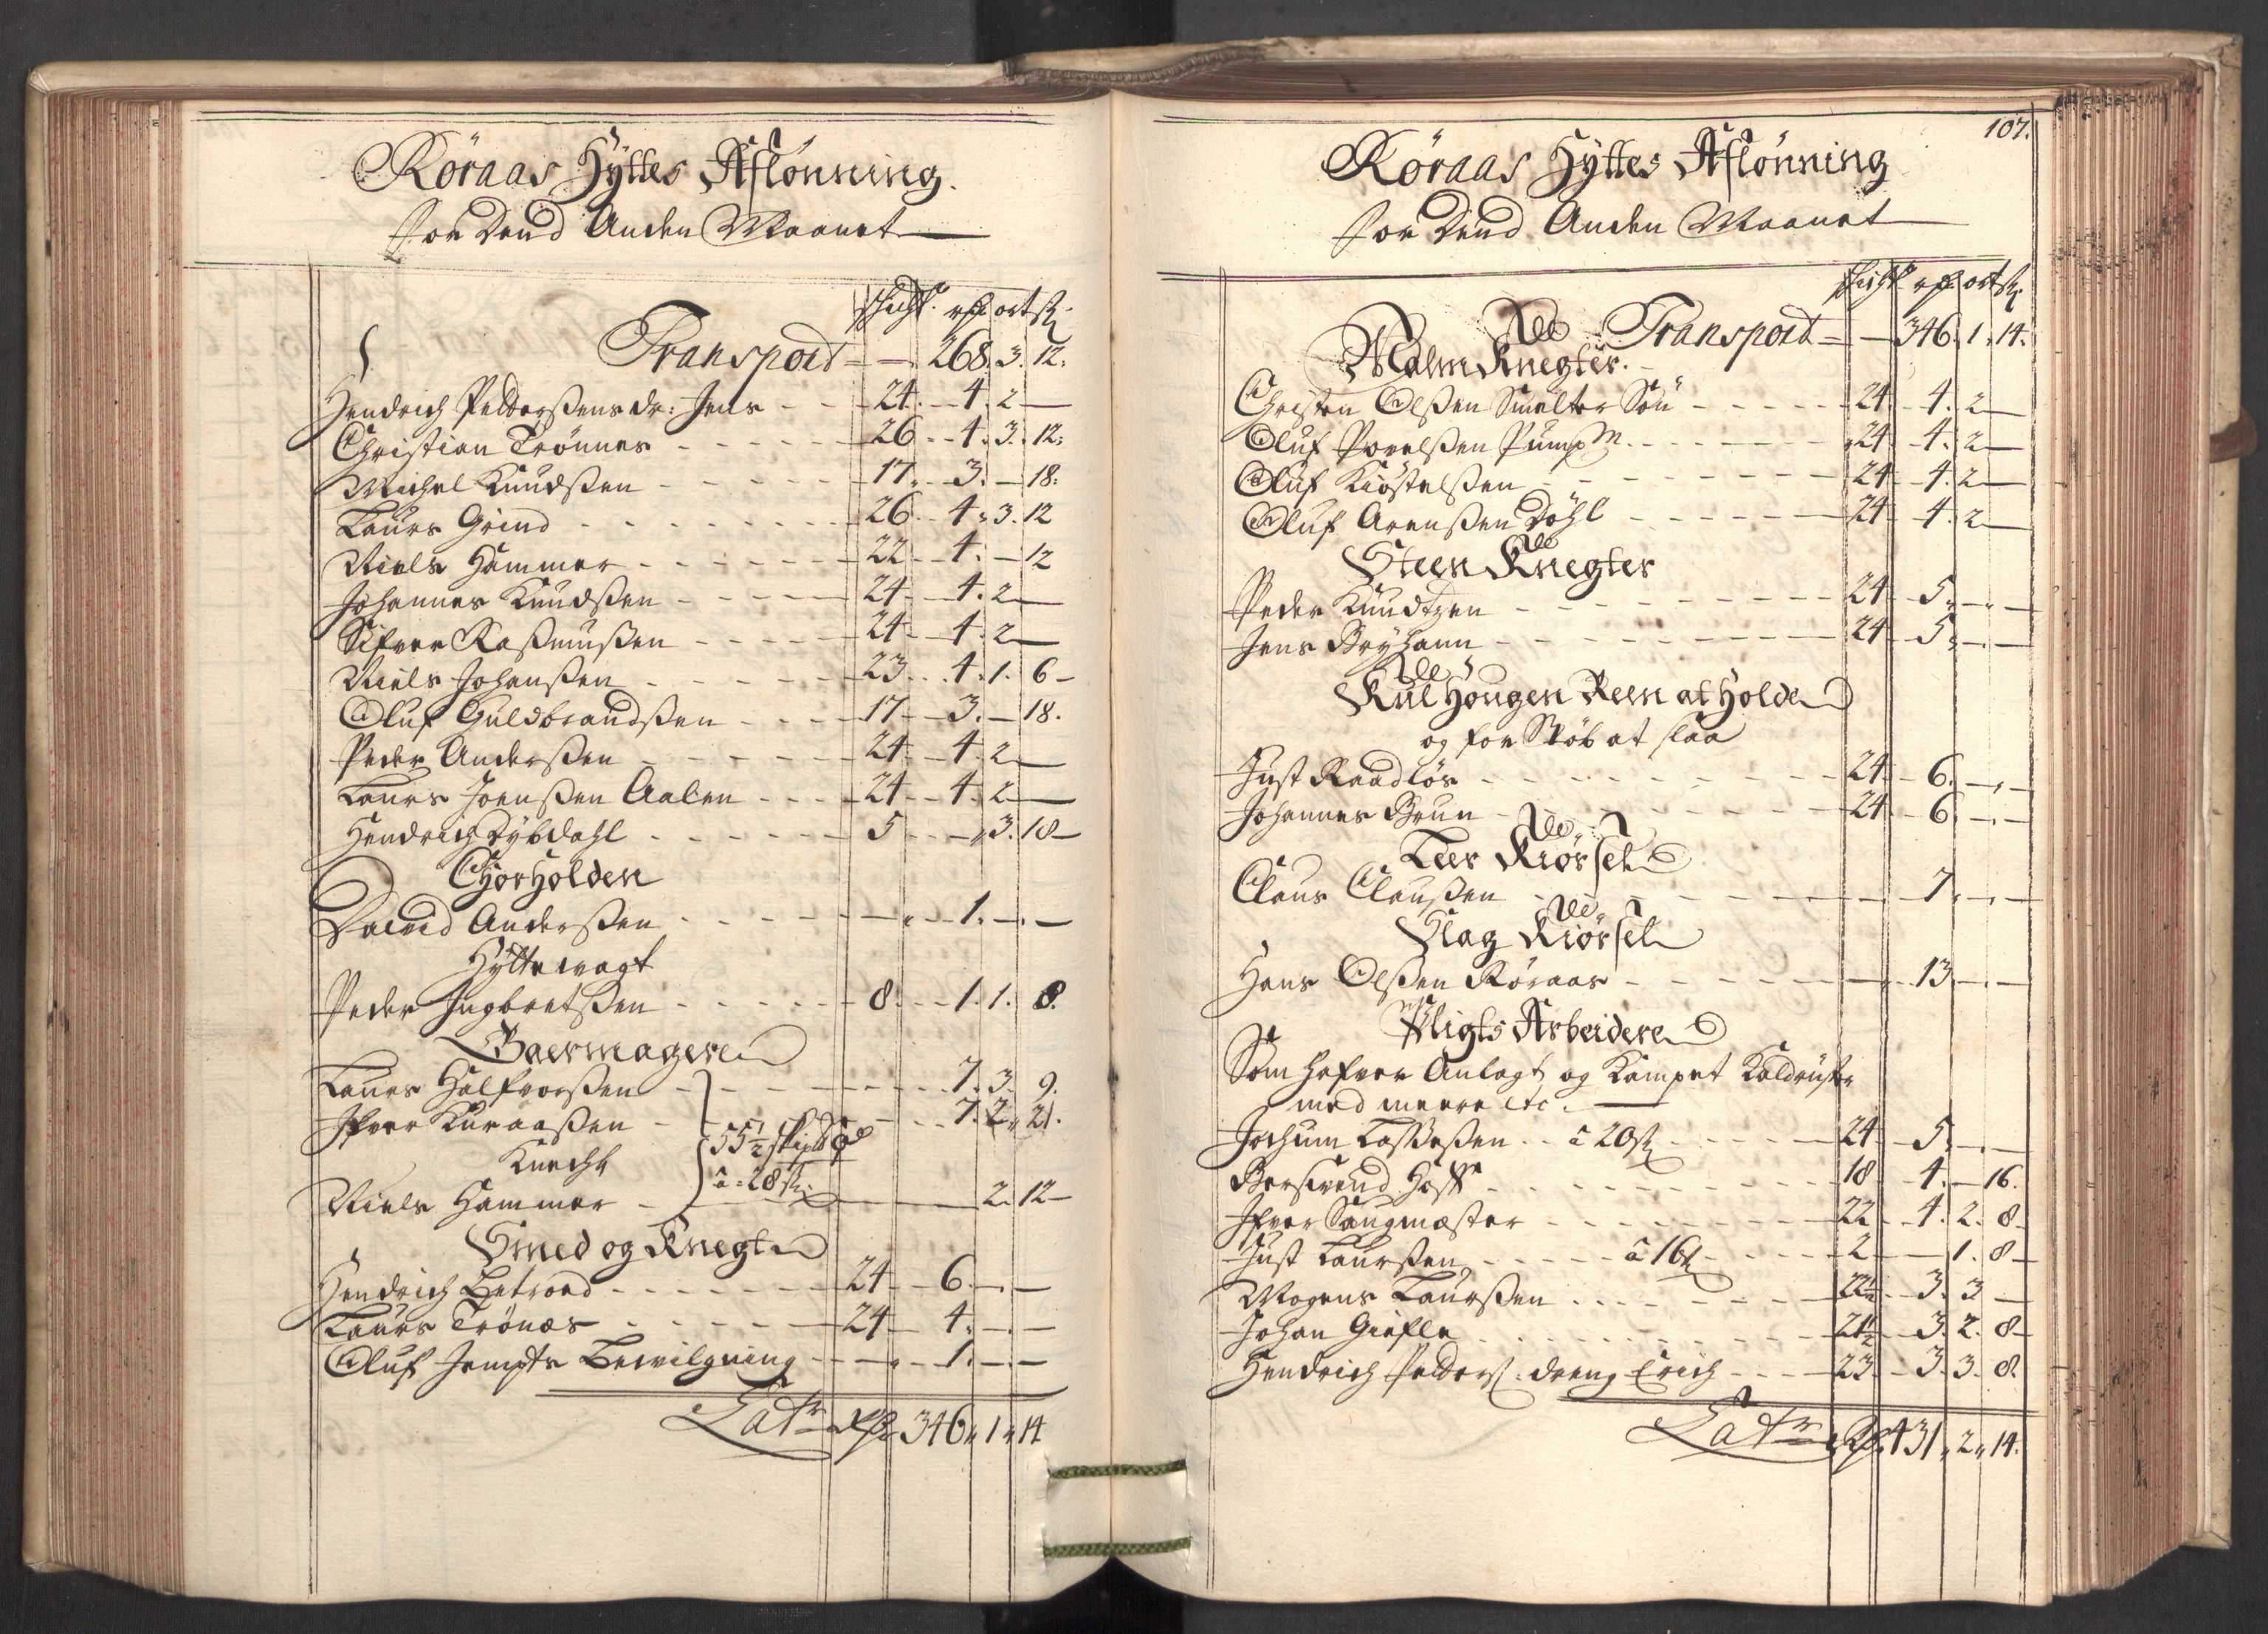 Röraas Hyttes Aflönning.
for Dend Anden Maanet
schicht. rdr ort sk.
Transport - - 268. 3. 12.
Hendrich Peddersens dr: Jens - - 24. - 4. 2 -
Christian Trönnes - - 26. - 4. 3. 12.
Michel Knudsen - - 17. - 3. - 18.
Laurs Grind - - 26. - 4. 3. 12
Niels Hammer - - 22 - 4. - 12
Johannes Knudsen - - 24 - 4. 2 -
Sifver Rasmussen - - 24 - 4. 2 -
Niels Johansen - - 23. - 4. 1. 6 -
Oluf Guldbrandsen - - 17 - 3. - 18.
Peder Andersen - - 24 - 4. 2 -
Laurs Joensen Aalen - - 24 - 4. 2 -
Hendrich Dybdahl - - 5 - - 3. 18 -
Chorholden
David Andersen - - 1. - -
Hyttevagt
Peder Ingbretsen - - 8. - 1. 1. 8.
Gaermagere
Laurs Halfvorsen - - 7. 3. 9.
Ifver Kuraasen - - 7. 2. 21.
Knecht 55 1/2 skipd
Niels Hammer - à 28 sk. - 2. 12 -
Smed og Knegt
Hendrich - - 24 - 6. - -
Laurs Trönæs - - 24 - 4. - -
Oluf Jempts Bevilgning - - 1. - -
Lat. rdr 346. 1. 14
107.
Röraas Hyttes Aflönning
for Dend Anden Maanet
schicht. rdr. ort sk.
Transport - - 346. 1. 14.
Malm Knegter.
Christen Olsen Smelter Sön - - 24 - 4. 2 -
Oluf Povelsen Pump M. - - 24 - 4. 2 -
Oluf Kiöstelsen - - 24 - 4. 2 -
Oluf Arensen Döhl - - 24 - 4. 2 -
Steen Knegter
Peder Knudtzen - - 24 - 5. - -
Jens Bryhann - - 24 - 5. - -
Kul Hougen Reen at Holde
og for Stöb at slaa
Just Raadlös - - 24. - 6. - -
Johannes Brun - - 24 - 6. - -
Leer Kiörsel
Claus Clausen - - 7. - -
Slag Kiörsel
Hans Olsen Röraas - - 13. - -
Pligts Arbeidere
Som hafver Anlagt og Kampet Kaldröster
med meere etc.
Jochum Lassesen - à 20 sk - 24 - 5. - -
Berswend Hoff - - 18 - 4. - 16.
Ifver Saugmæster - - 22 - 4. 2. 8 -
Just Laursen - à 16 sk - 2 - - 1. 8 -
Mogens Laursen - - 22 1/2 - 3. 3 -
Johan Giefle - - 21 1/2 - 3. 2. 8 -
Hendrich Pedders. dreng Erich - - 23 - 3. 3. 8.
Lat. rdr 431. 2. 14.